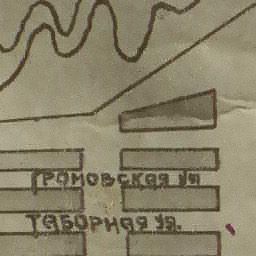 ГРОМОВСКАЯ УЛ
ТАБОРНАЯ УЛ.